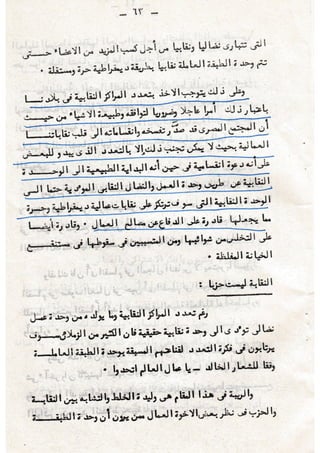 — ٦٣ —
التى تتبارى نضاليا ونقابيا من أجل كسب المزيد من الاعضاء حـــتى
تتم وحدة الطبقة العاملة نقابيا بطريقة ديمقراطية حرة ومستقلة ٠
وعلى ذلك يتوجب الاخذ بتعدد المراكز النقابية فى بلادنــا
باعتبار ذلك أمرا عاجلا وضروريا لتوافقه وطبيعة الاشياء من حيــث
أن المجتمع المصرى قد صدّر تفسخه وانقساماته الى قلب نقاباتنــا
العمالية بحيث لا يمكن تجنب ذلك إلا بالتعدد الذى يبدو للبعض
على أنه دعوة انقسامية فى حين أنه البداية الطبيعية الى الوحـــدة
النقابية عن طريق وحدة العمل والنضال النقابى المؤدية حتما الــى
الوحدة النقابية التى سوف ترتكز على نقابات عمالية ديمقراطية وحــرة
مما يجعلها قادرة على الدفاع عن مصالح العمال ٠ وقادرة أيضــا
على التخلص من شوائبها ومن المتسببين فى سقوطها فى مستنقــع
الخيانة المغلظة ٠
النقابة ليست حزبا :
رغم تعدد المراكز النقابية وما يولده من وحدة عمل
نضالى تؤدى الى وحدة نقابية حقيقية فان الكثير من الزملاء ســوف
يرتابون فى فكرة التعدد لقناعتهم المسبقة بوحدة الطبقة العاملــة
وفقا للشعار الخالد — يا عمال العالم اتحدوا "
والريبة فى هذا المقام هى وليدة الخلط والتشابه بين النقابة
والحزب فى نظر بعض الاخوة العمال ممن يرون أن وحدة الطبقــة